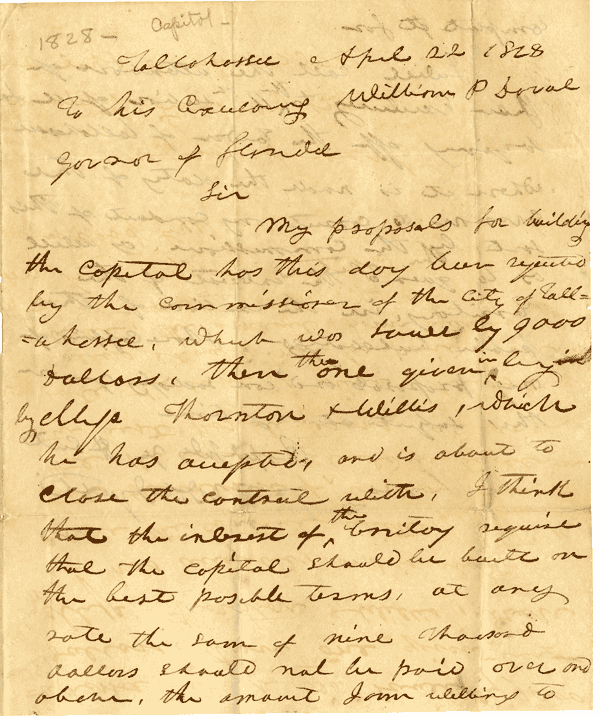 1828 - Capitol -
Tallahassee April 22 1828
To his Excelency William P Duval
Govnor of Florida
Sir
My proposals for building
the capital has this day been rejected
by the commissioner of the City of Tall=
=ahassee, which was lower by 9000
Dollars, then the one given in
by Mess Thornton & Willis, which
he has accepted, and is about to
close the contract with, I think
that the interest of the Territory require
that the capital should be built on
the best posible terms, at any
rate the sum of nine thousand
dollars should not be paid over and
above, the amount I am willing to